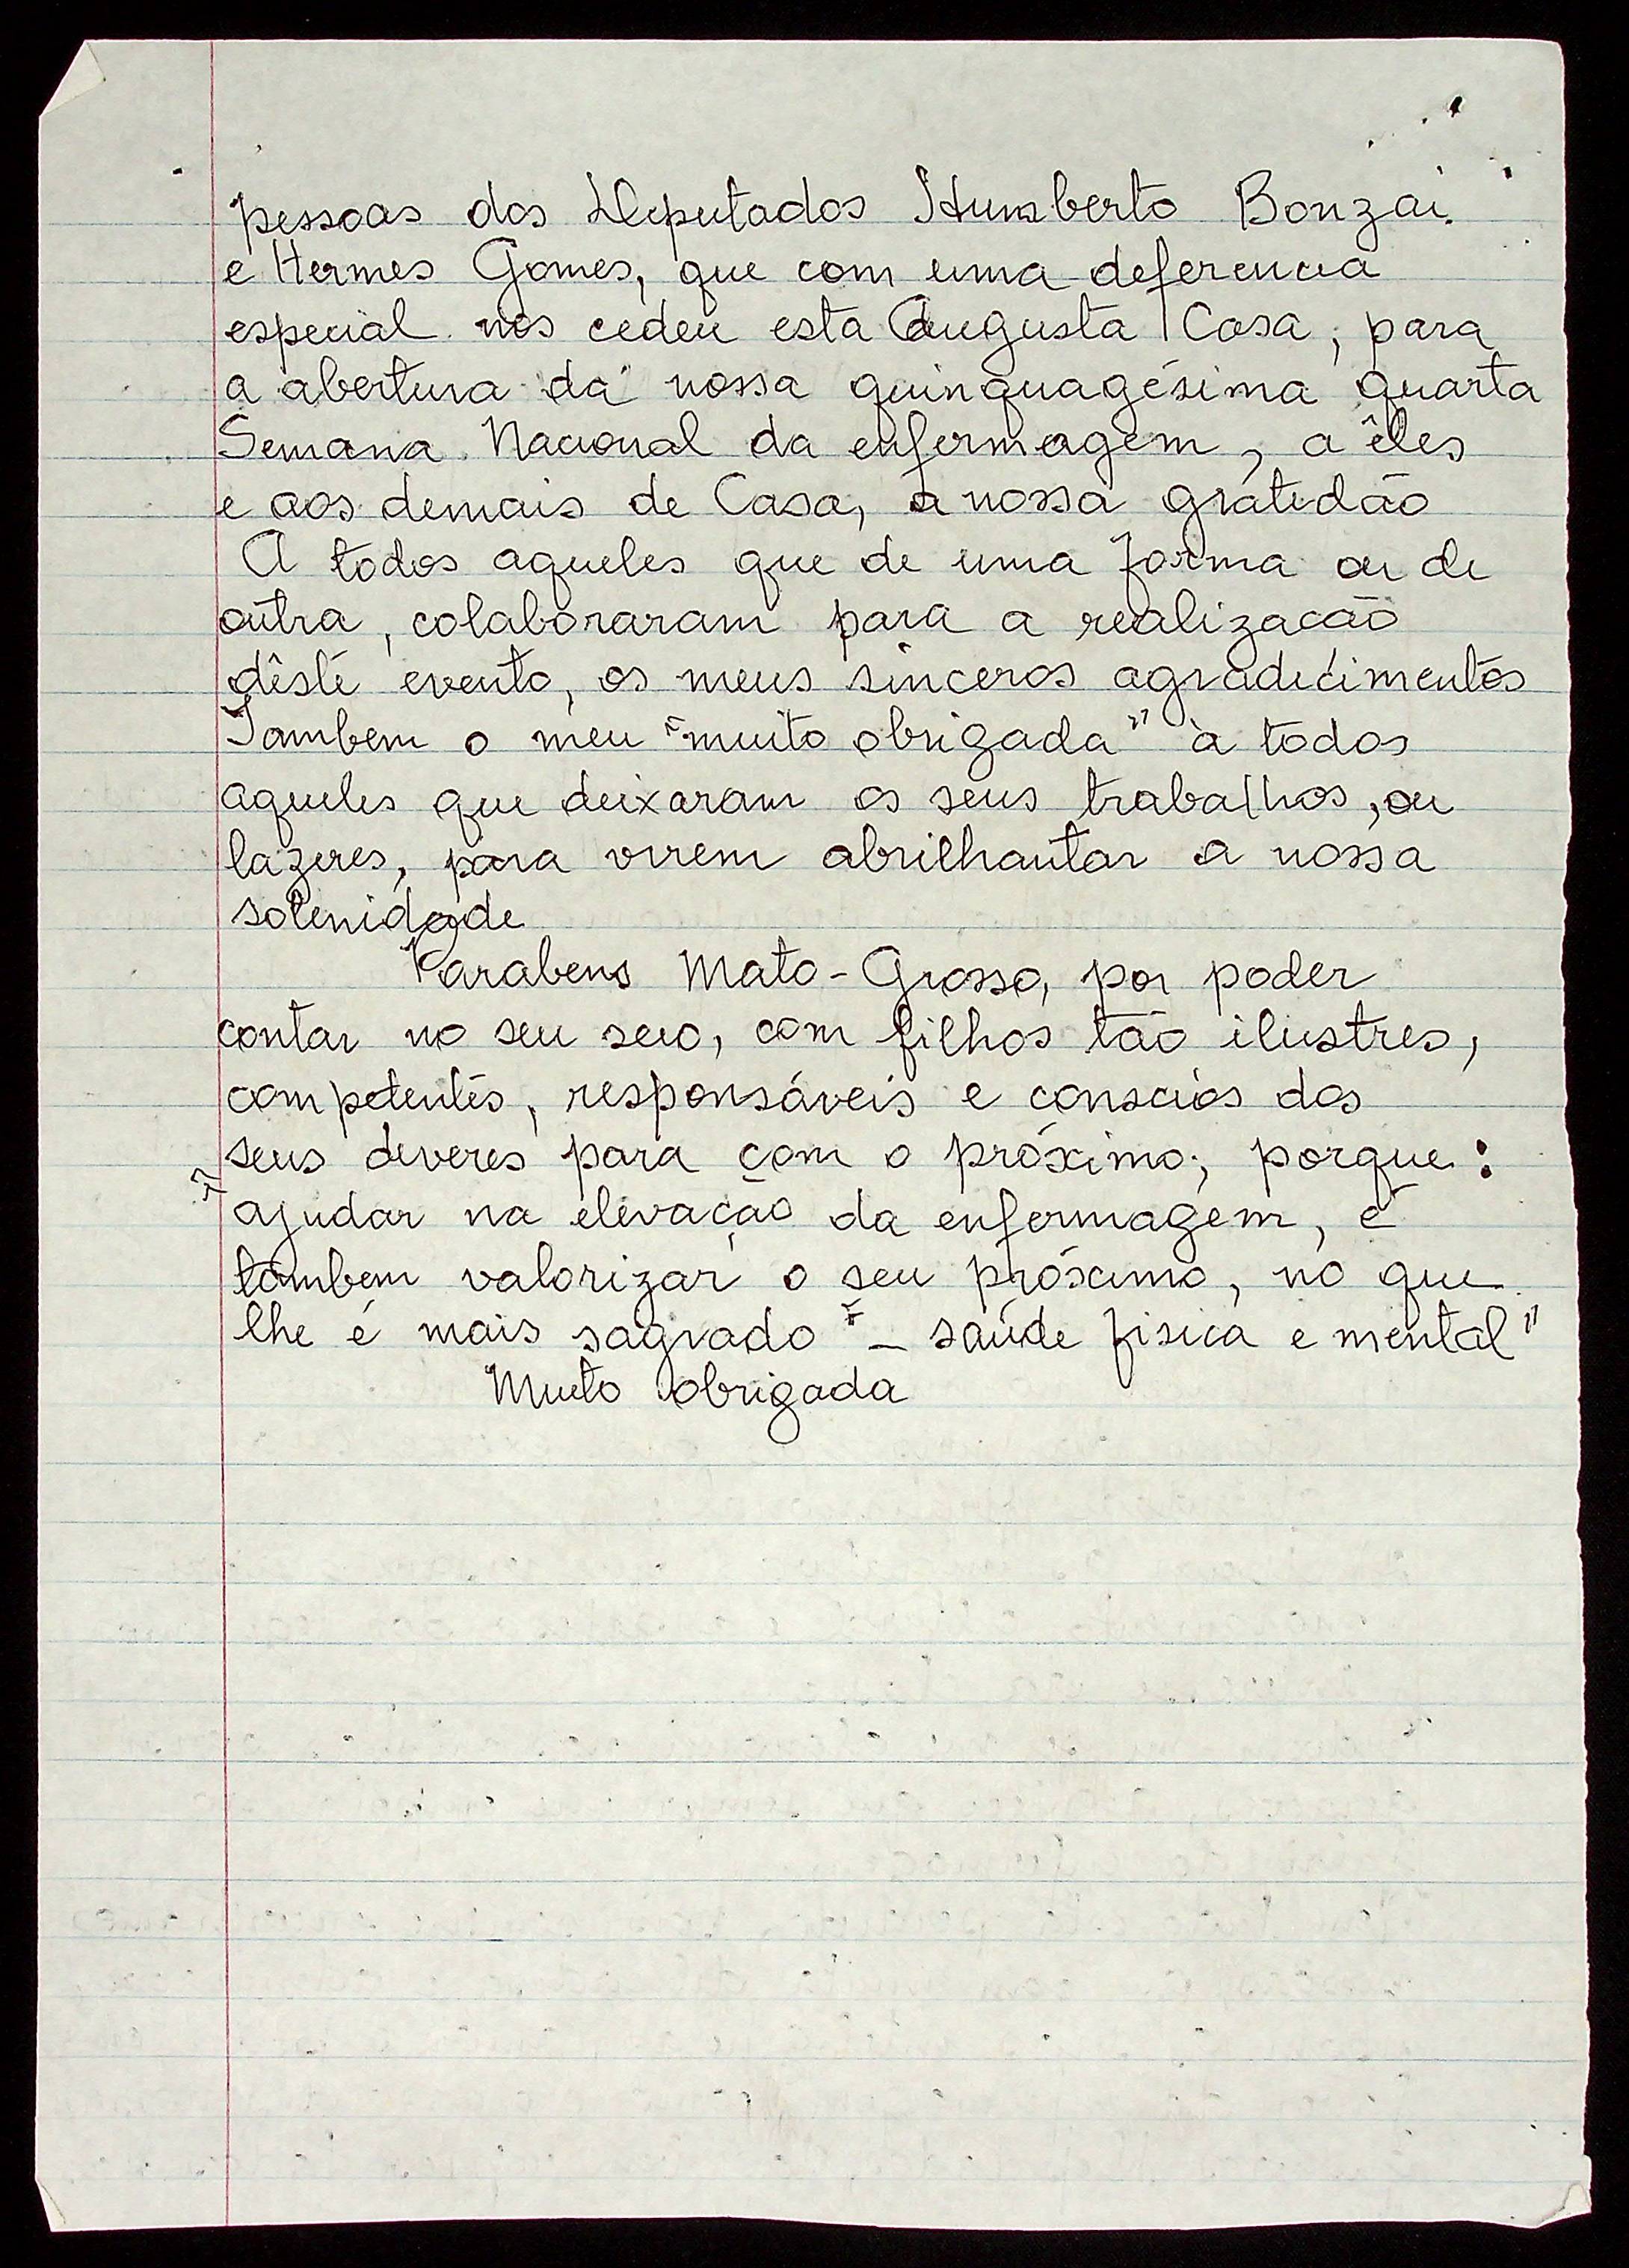 pessoas dos Deputados Humberto Bonzai
e Hermes Gomes, que com uma deferencia
especial nos cedeu esta Augusta Casa, para
a abertura da nossa quinquagésima quarta
Semana Nacional da enfermagem, a êles
e aos demais de Casa, a nossa gratidão
A todos aqueles que de uma forma ou de
outra, colaboraram para a realizacão
dêste evento, os meus sinceros agradecimentos
Tambem o meu "muito obrigada" à todos
aqueles que deixaram os seus trabalhos, ou
lazeres, para virem abrilhantar a nossa
solenidade
Parabens Mato-Grosso, por poder
contar no seu seio, com filhos tão ilustres,
competentes, responsáveis e conscios dos
seus deveres para com o próximo; porque:
"ajudar na elevação da enfermagem, é
tambem valorizar o seu próximo, no que
lhe é mais sagrado " - saúde fisica e mental"
Muito obrigada